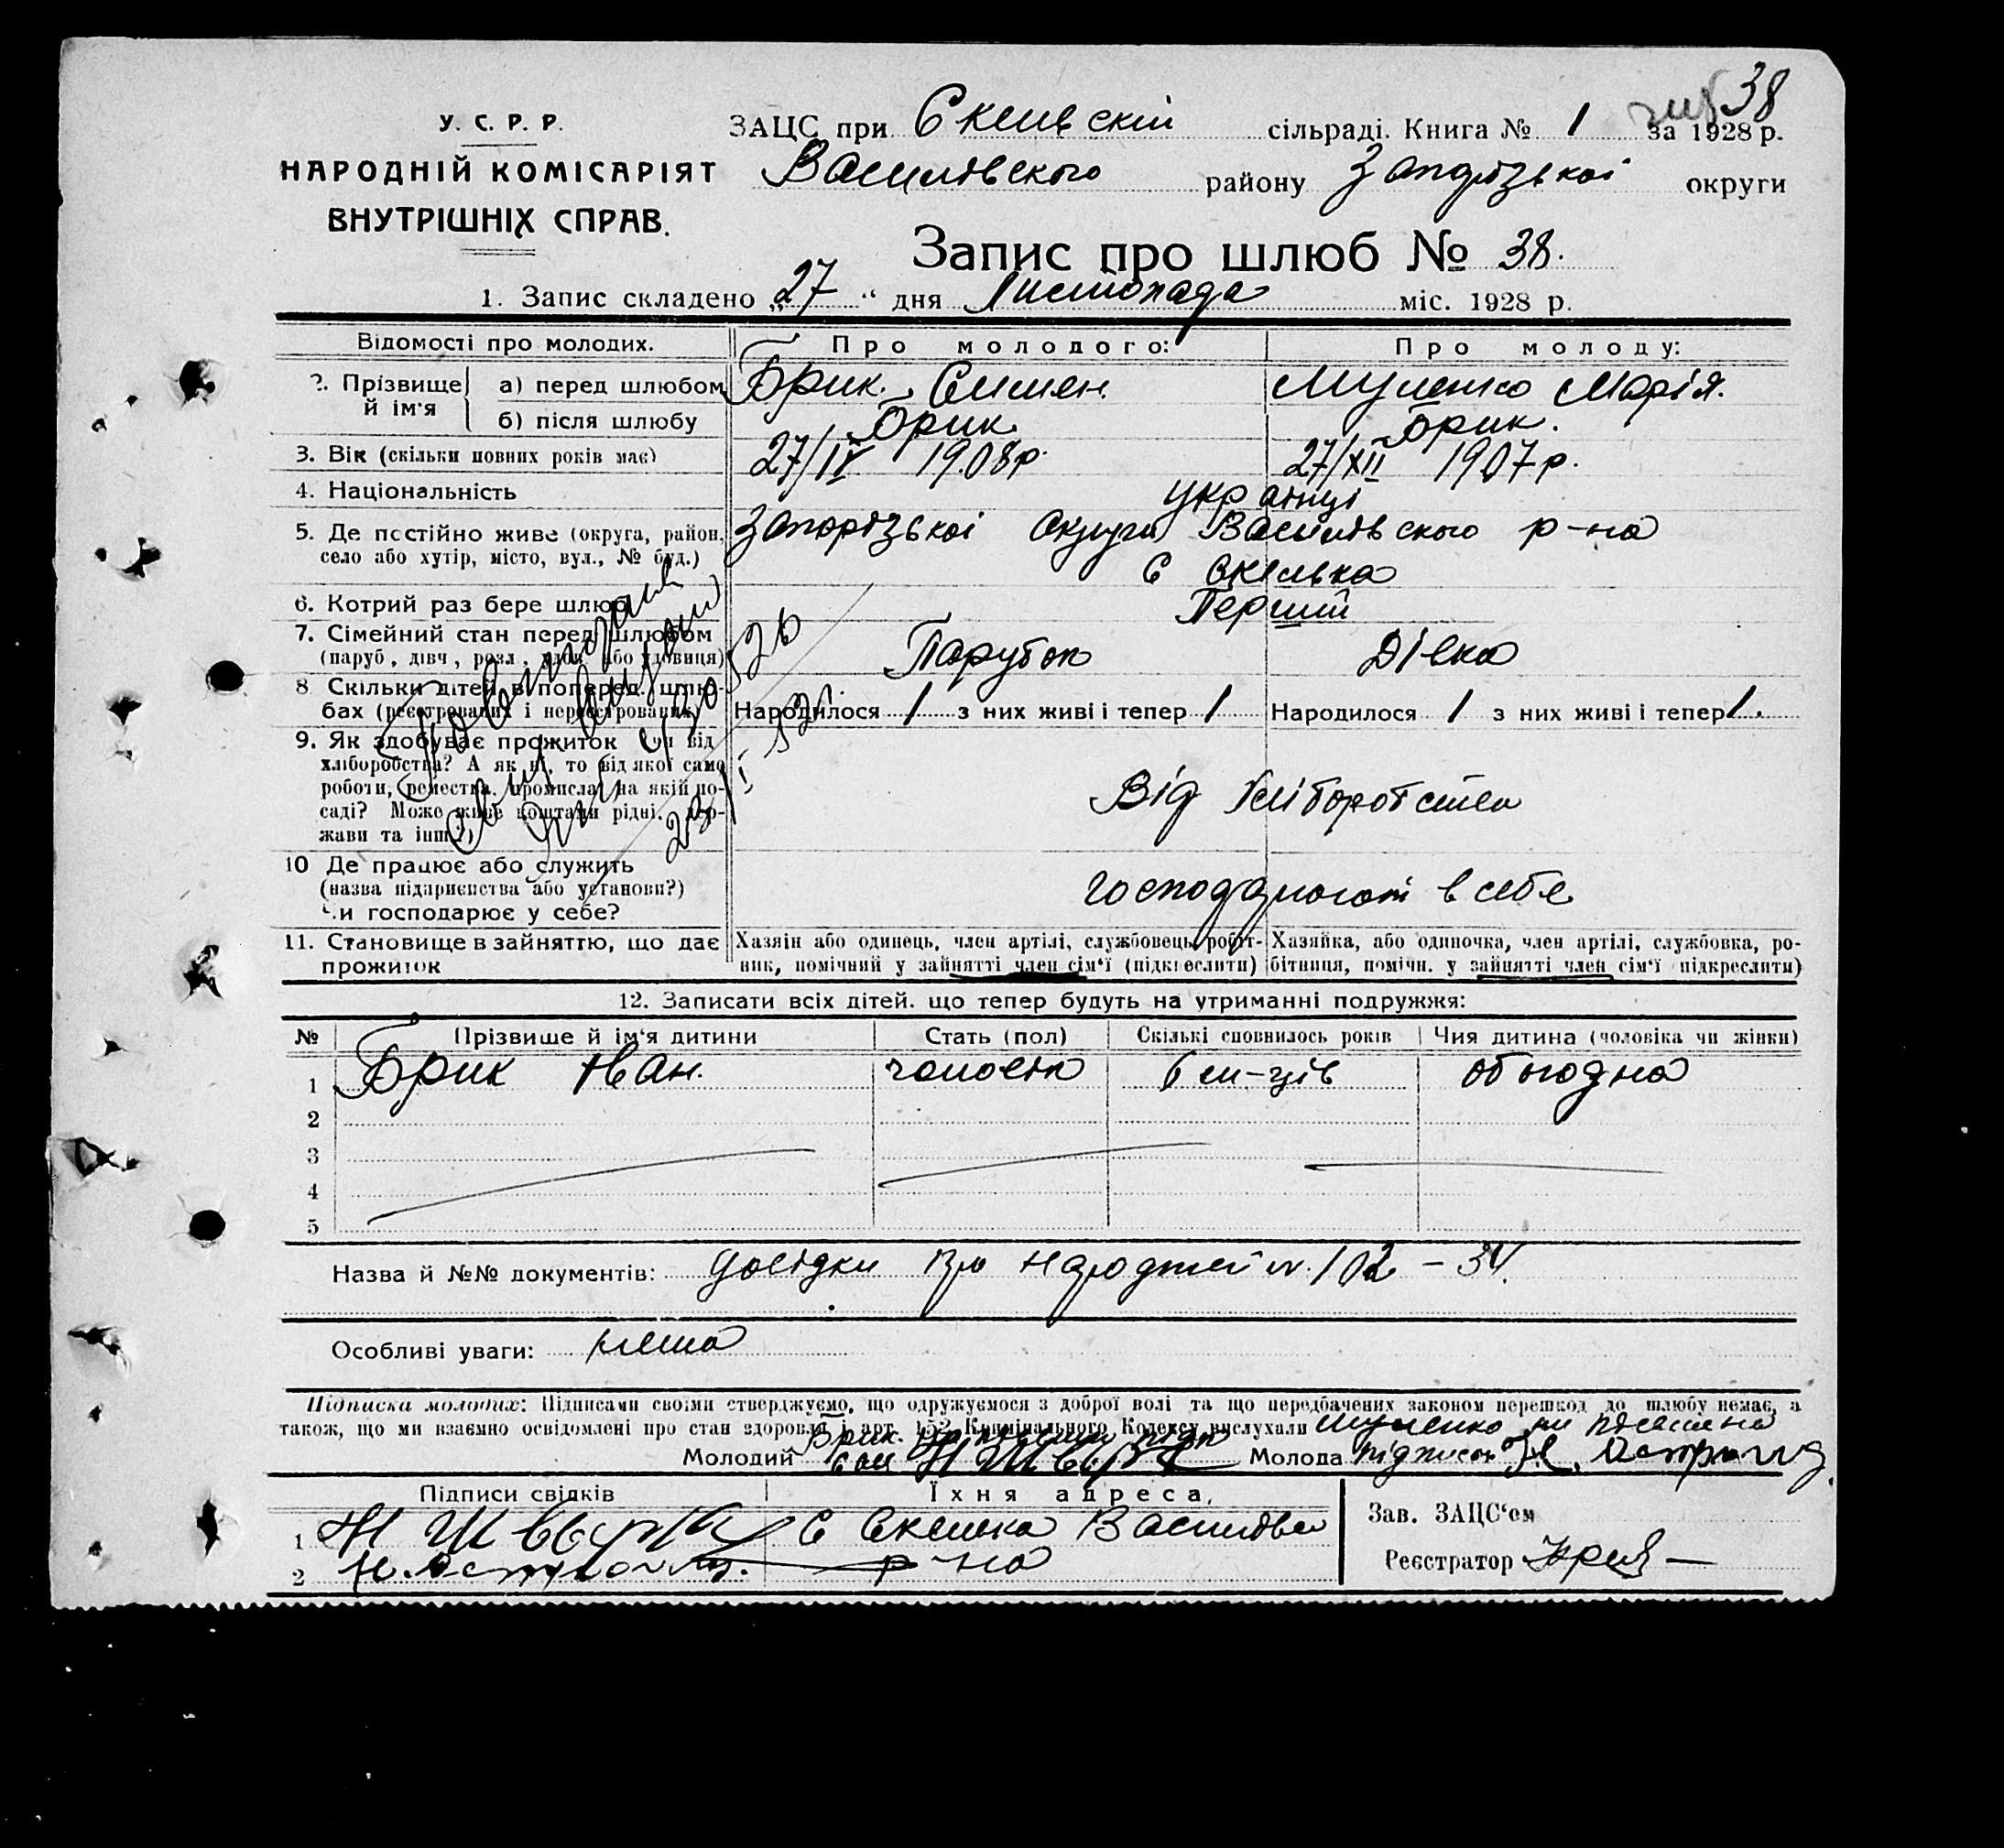 38
У. С. Р. Р.
НАРОДНІЙ КОМІСАРІЯТ
ВНУТРІШНІХ СПРАВ.
ЗАЦС при сільраді. Книга № 1 за 1928 р.
району округи
Запис про шлюб № 38.
1. Запис складено „27“ дня Листопада міс. 1928 р.
Відомості про молодих. Про молодого: Про молоду:
2. Прізвище й ім'я а) перед шлюбом Брик Симен. Марія.
б) після шлюбу Брик Брик.
3. Вік (скільки повних років має) 27/IV 1908р. 27/XII 1907р.
4. Національність українці
5. Де постійно живе (округа, район, Запорізької Округи Василівського р-на
село або хутір, місто, вул., № буд.) с Скелька
6. Котрий раз бере шлюб Перший
7. Сімейний стан перед шлюбом Парубок Дівка
(паруб., дівч., розл., удов. або удовиця)
8 Скільки дітей в поперед. шлю-
бах (реєстрованих і нереєстрованих) Народилося 1 з них живі і тепер 1 Народилося 1 з них живі і тепер 1.
9. Як здобуває прожиток чи від
хліборобства? А як ні, то від якої само
роботи, ремества, промисла, на якій по-
саді? Може живе коштами рідні, дер-
жави та інш.?) Від хліборобства
10 Де працює або служить
(назва підприєнства або установи?) в себе
Чи господарює у себе?
11. Становище в зайняттю, що дає Хазяін або одинець, член артілі, службовець, робіт- Хазяйка, або одиночка, член артілі, службовка, ро-
прожиток ник, помічний у зайнятті член сім'ї (підкреслити) бітниця, помічн. у зайнятті член сім'ї підкреслити)
12. Записати всіх дітей. що тепер будуть на утриманні подружжя:
№ Прізвище й ім'я дитини Стать (пол) Скількі сповнилось років Чия дитина (чоловіка чи жінки)
1 Брик Іван. 6 м-ців
2
3
4
5
Назва й №№ документів: про 102 – 34.
Особливі уваги: нема
Підписка молодих: Підписами своїми стверджуємо, що одружуємося з доброї волі та що передбачених законом перешкод до шлюбу немає, а
також, що ми взаємно освідомлені про стан здоровля і арт. 152 Кримінального Кодексу вислухали
Молодий Брик Молода
Підписи свідків Їхня адреса,
1 с Скелька
2 р-на
Зав. ЗАЦС'ом
Реєстратор